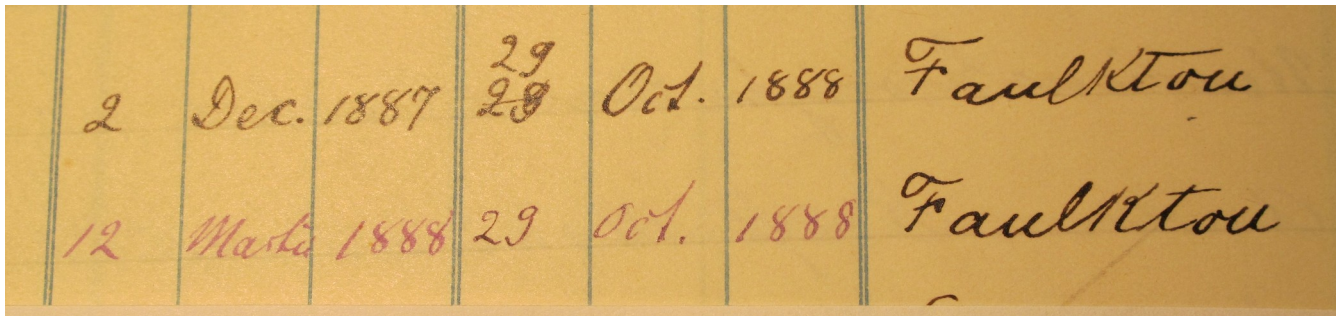 29
2 Dec. 1887 28 Oct. 1888 Faulkton
12 March 1888 29 Oct. 1888 Faulkton